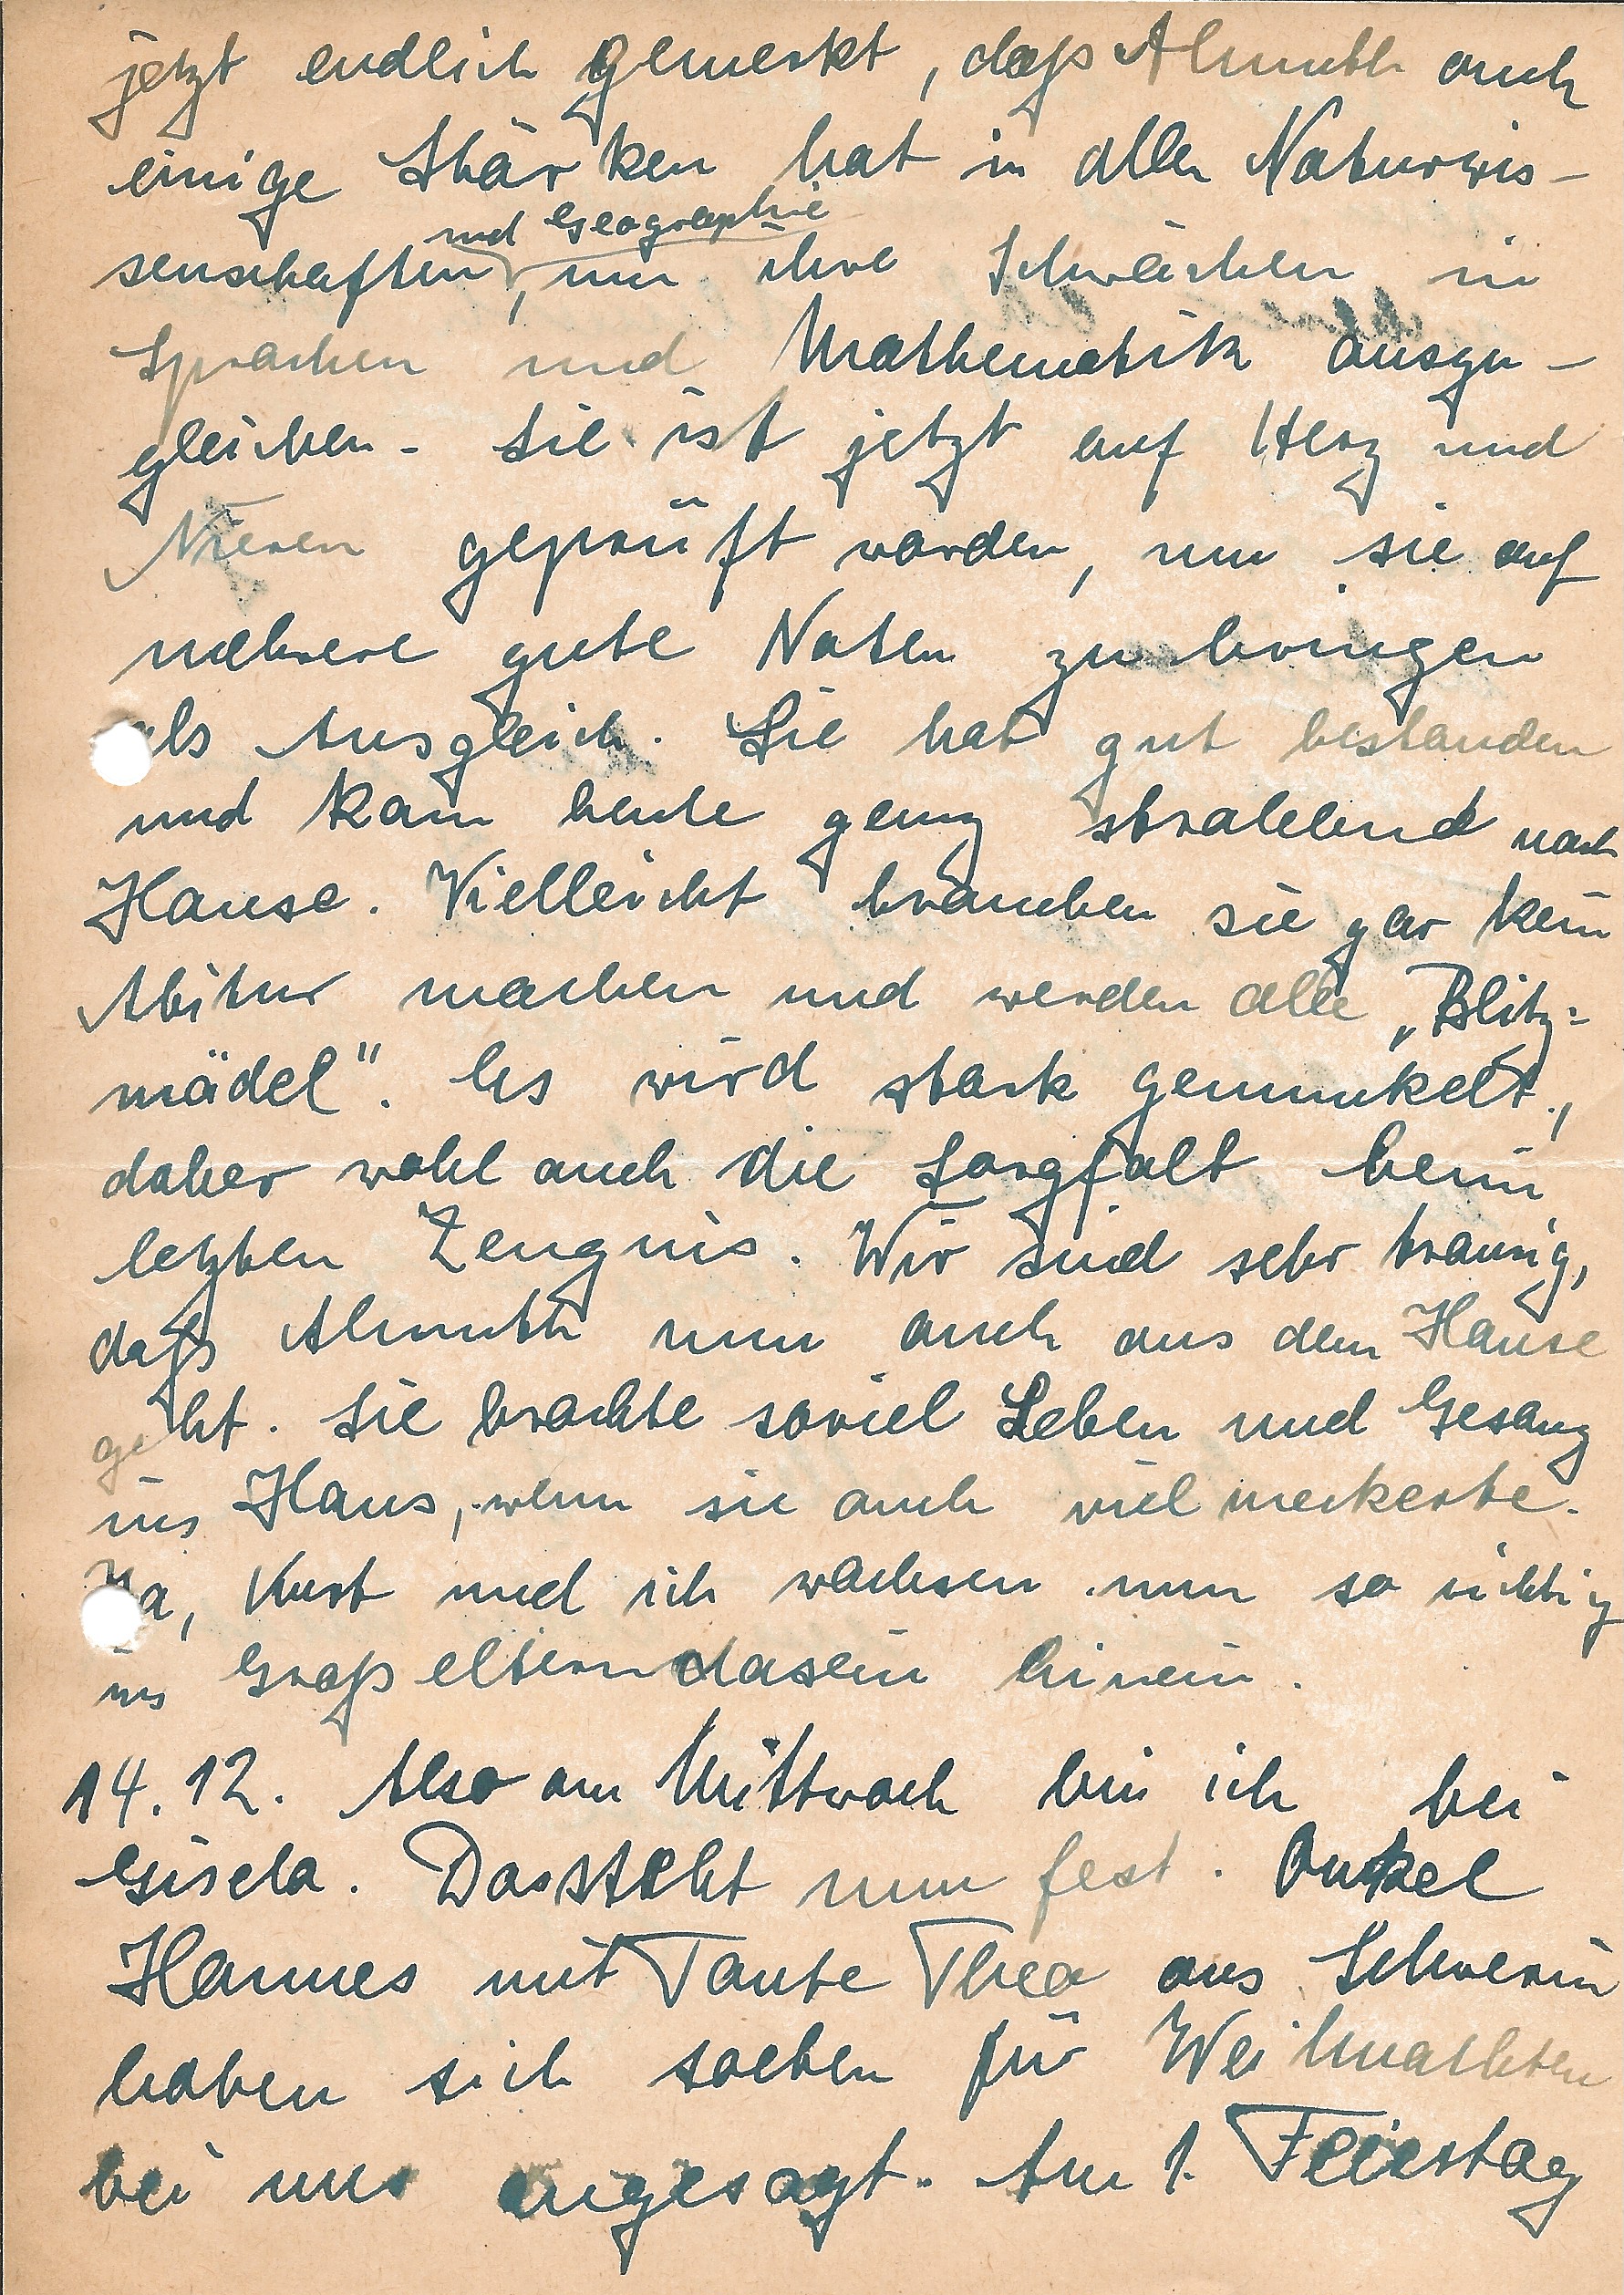 jetzt endlich gemerkt, daß Almuth auch
einige Stärken hat in allen Naturwis-
und Geographie
senschaften, um ihre Schwächen in
Sprachen und Mathematik auszu-
gleichen. Sie ist jetzt auf Herz und
Nieren geprüft worden, um sie auf
mehrere gute Noten zu bringen
als Ausgleich. Sie hat gut bestanden
und kam heute ganz strahlend nach
Hause. Vielleicht brauchen sie gar kein
Abitur machen und werden alle „Blitz=
mädel". Es wird stark gemunkelt,
daher wohl auch die Sorgfalt beim
letzten Zeugnis. Wir sind sehr traurig,
daß Almuth nun auch aus dem Hause
geht. Sie brachte soviel Leben und Gesang
ins Haus, wenn sie auch viel meckerte.
Na, Kurt und ich wachsen nun so richtig
ins Großelterndasein hinein.
14.12. Also am Mittwoch bin ich bei
Gisela. Das steht nun fest. Onkel
Hannes mit Tante Thea aus Schwerin
haben sich soeben für Weihnachten
bei uns angesagt. Am 1. Feiertag